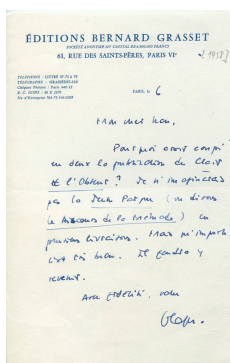 ÉDITIONS BERNARD GRASSET
SOCIÉTÉ ANONYME AU CAPITAL
61, RUE DES SAINTS-PÈRES, PARIS VIe
[1958?]
TÉLÉPHONE : LITTRÉ
TÉLÉGRAPHE : GRASSÉDIT-PARIS
Chèques Postaux : Paris
R. C. SEINE
No d'Entreprise
PARIS, le 6
Mon cher
Pourquoi avoir coupé
en deux la publication du Clair
et l'Obscur ? Je n'imaginerais
pas la Jeune Parque (ou disons
le Discours de la Méthode) en
plusieurs livraisons. Mais n'importe
c'est très bien. Il faudra y
revenir.
Avec fidélité, votre